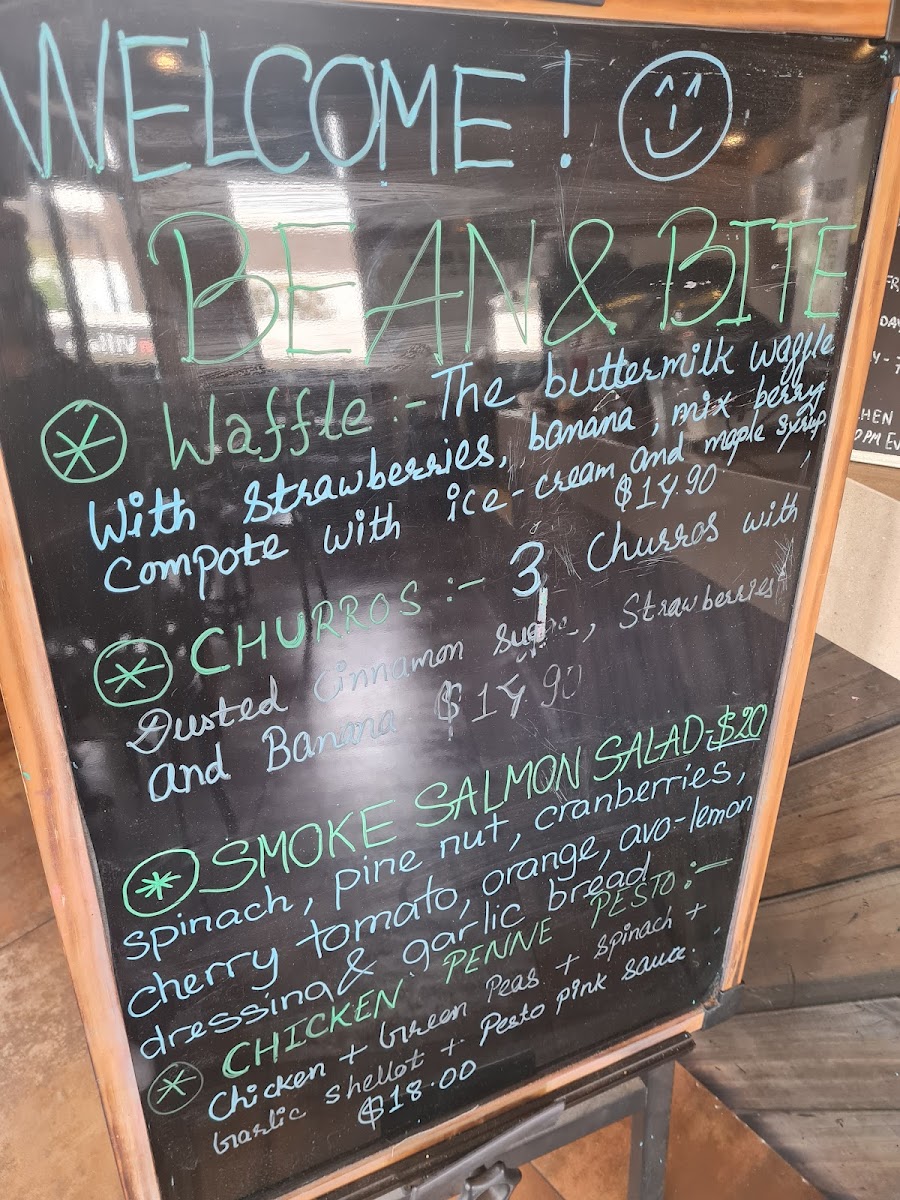 WELCOME!
BEAN & BITE
Waffle :- The buttermilk waffle
With strawberries, banana, mix berry
Compote with ice-cream and maple syrup.
$14.90
CHURROS :- 3 Churros with
Dusted Cinnamon sugar, Strawberries
and Banana $14.90
SMOKE SALMON SALAD-$20
spinach, pine nut, cranberries,
cherry tomato, orange, avo-lemon
dressing & garlic bread
CHICKEN PENNE PESTO :-
Chicken + Green Peas + Spinach +
Garlic Shellot + Pesto pink sauce..
$18.00